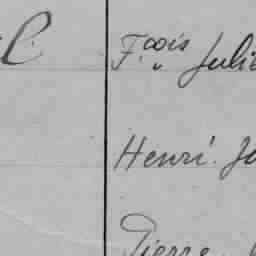 F.çois Juli
Henri. J
Pierre